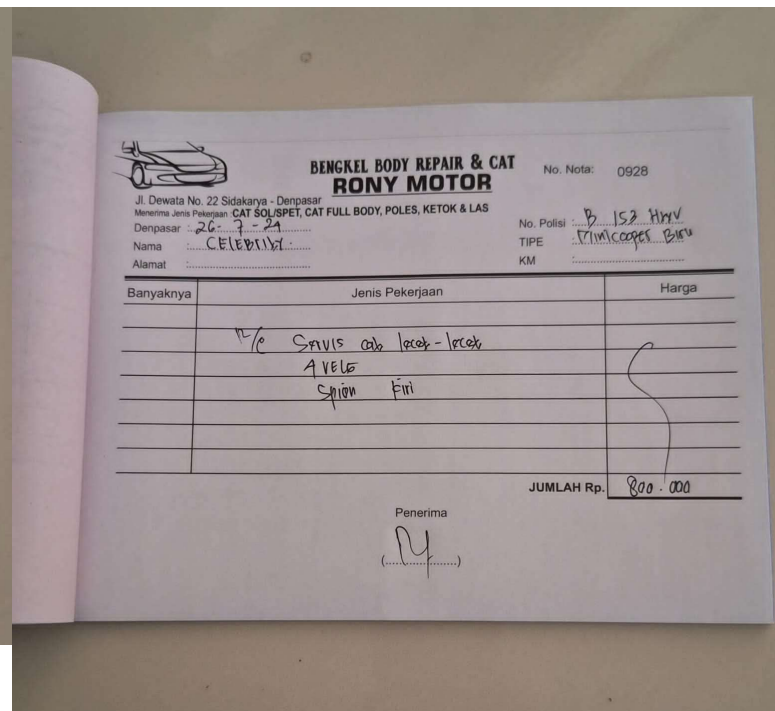 BENGKEL BODY REPAIR & CAT
RONY MOTOR
No. Nota: 0928
Jl. Dewata No. 22 Sidakarya - Denpasar
Menerima Jenis Pekerjaan : CAT SOL/SPET, CAT FULL BODY, POLES, KETOK & LAS
Denpasar : 26 - 7 - 24
Nama :
Alamat :
No. Polisi : B 153
TIPE : Minicooper Biru
KM :
Banyaknya Jenis Pekerjaan Harga
Servis cat lecet-lecet
4 VELG
Spion Kiri
JUMLAH Rp. 800.000
Penerima
(....................)